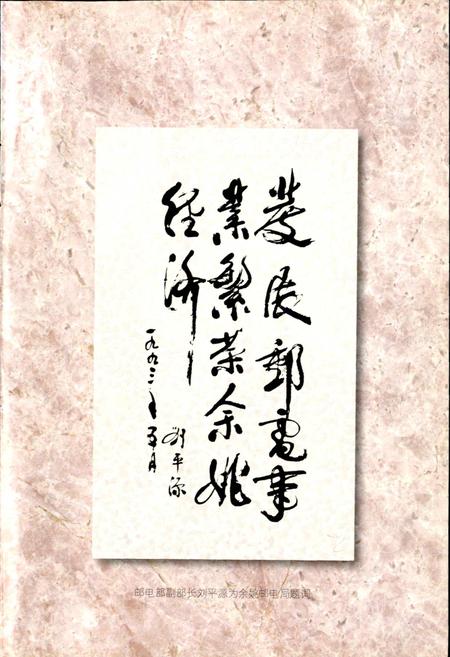 发展邮电事
业繁荣余姚
经济
一九九三年五月
刘平源
邮电部副部长刘平源为余姚邮电局题词